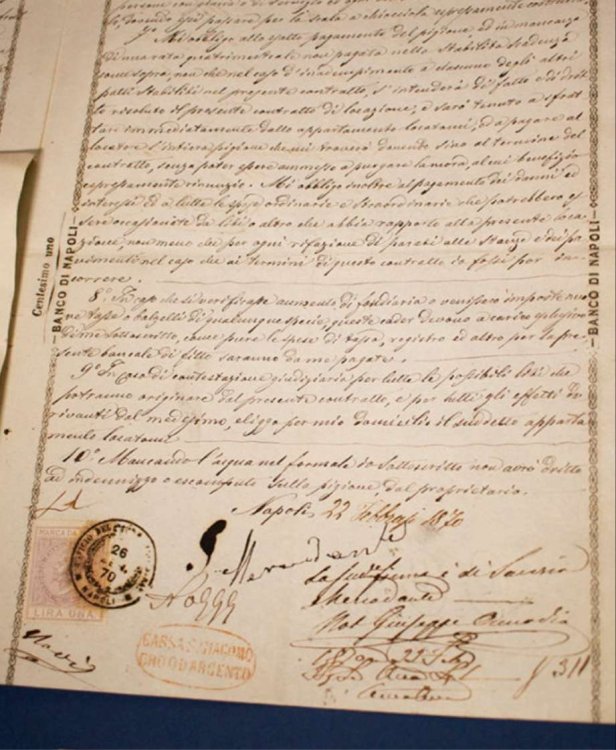 so, dovendo essi passare per la scala a chiocciola espressamente costruita
7° Mi obbligo all'esatto pagamento del pigione, ed in mancanza
di una rata quatrimestrale non pagata nella stabilita scadenza
come sopra, non che nel caso d'inadempimento a ciascuno degli altri
patti stabiliti nel presente contratto, s'intenderà di fatto e di dritto
risoluto il presente contratto di locazione, e sarò tenuto a sfrat
tare immediatamente dallo appartamento locatomi, ed a pagare al
locatore l'intiera pigione che mi troverà dovuto sino al termine del
contratto, senza poter essere ammesso a purgare la mora, al cui beneficio
espressamente rinunzio. Mi obbligo inoltre al pagamento dei danni ed
interessi di a tutte le spese ordinarie e straordinarie che potrebbero es
sere occasionate da liti o altro che abbia rapporto alla presente loca
zione, non meno che per ogni rifazione di pareti alle stanze e dei pa
vimenti nel caso che ai termini di questo contratto io fossi per in
correre.
8° In caso che si verificasse aumento di fondiaria o venissero imposte nuo
ve tasse o balzelli di qualunque specie, queste cader devono a carico esclusivo
di me sottoscritto, come pure le spese di tassa, registro ed altro per la pre
sente bancale di fitto saranno da me pagate.
9° In caso di contestazione giudiziaria per tutte le possibili liti che
potranno originare dal presente contratto, e per tutti gli effetti de
rivanti dal medesimo, eliggo per mio domicilio il suddetto apparta
mento locatomi
10° Mancando l'acqua nel formale io sottoscritto non avrò dritto
ad indennizzo o escomputo sulla pigione dal proprietario.
Napoli 22 Febbraio 1870
S. Mercadante
La suddetta firma è di Saverio
Mercadante
Not Giuseppe Amodio
Centesimo uno
BANCO DI NAPOLI
BANCO DI NAPOLI
MARCA DA
LIRA UNA
UFFICIO DEL
26
70
NAPOLI
CASSA S. GIACOMO
ORO ED ARGENTO